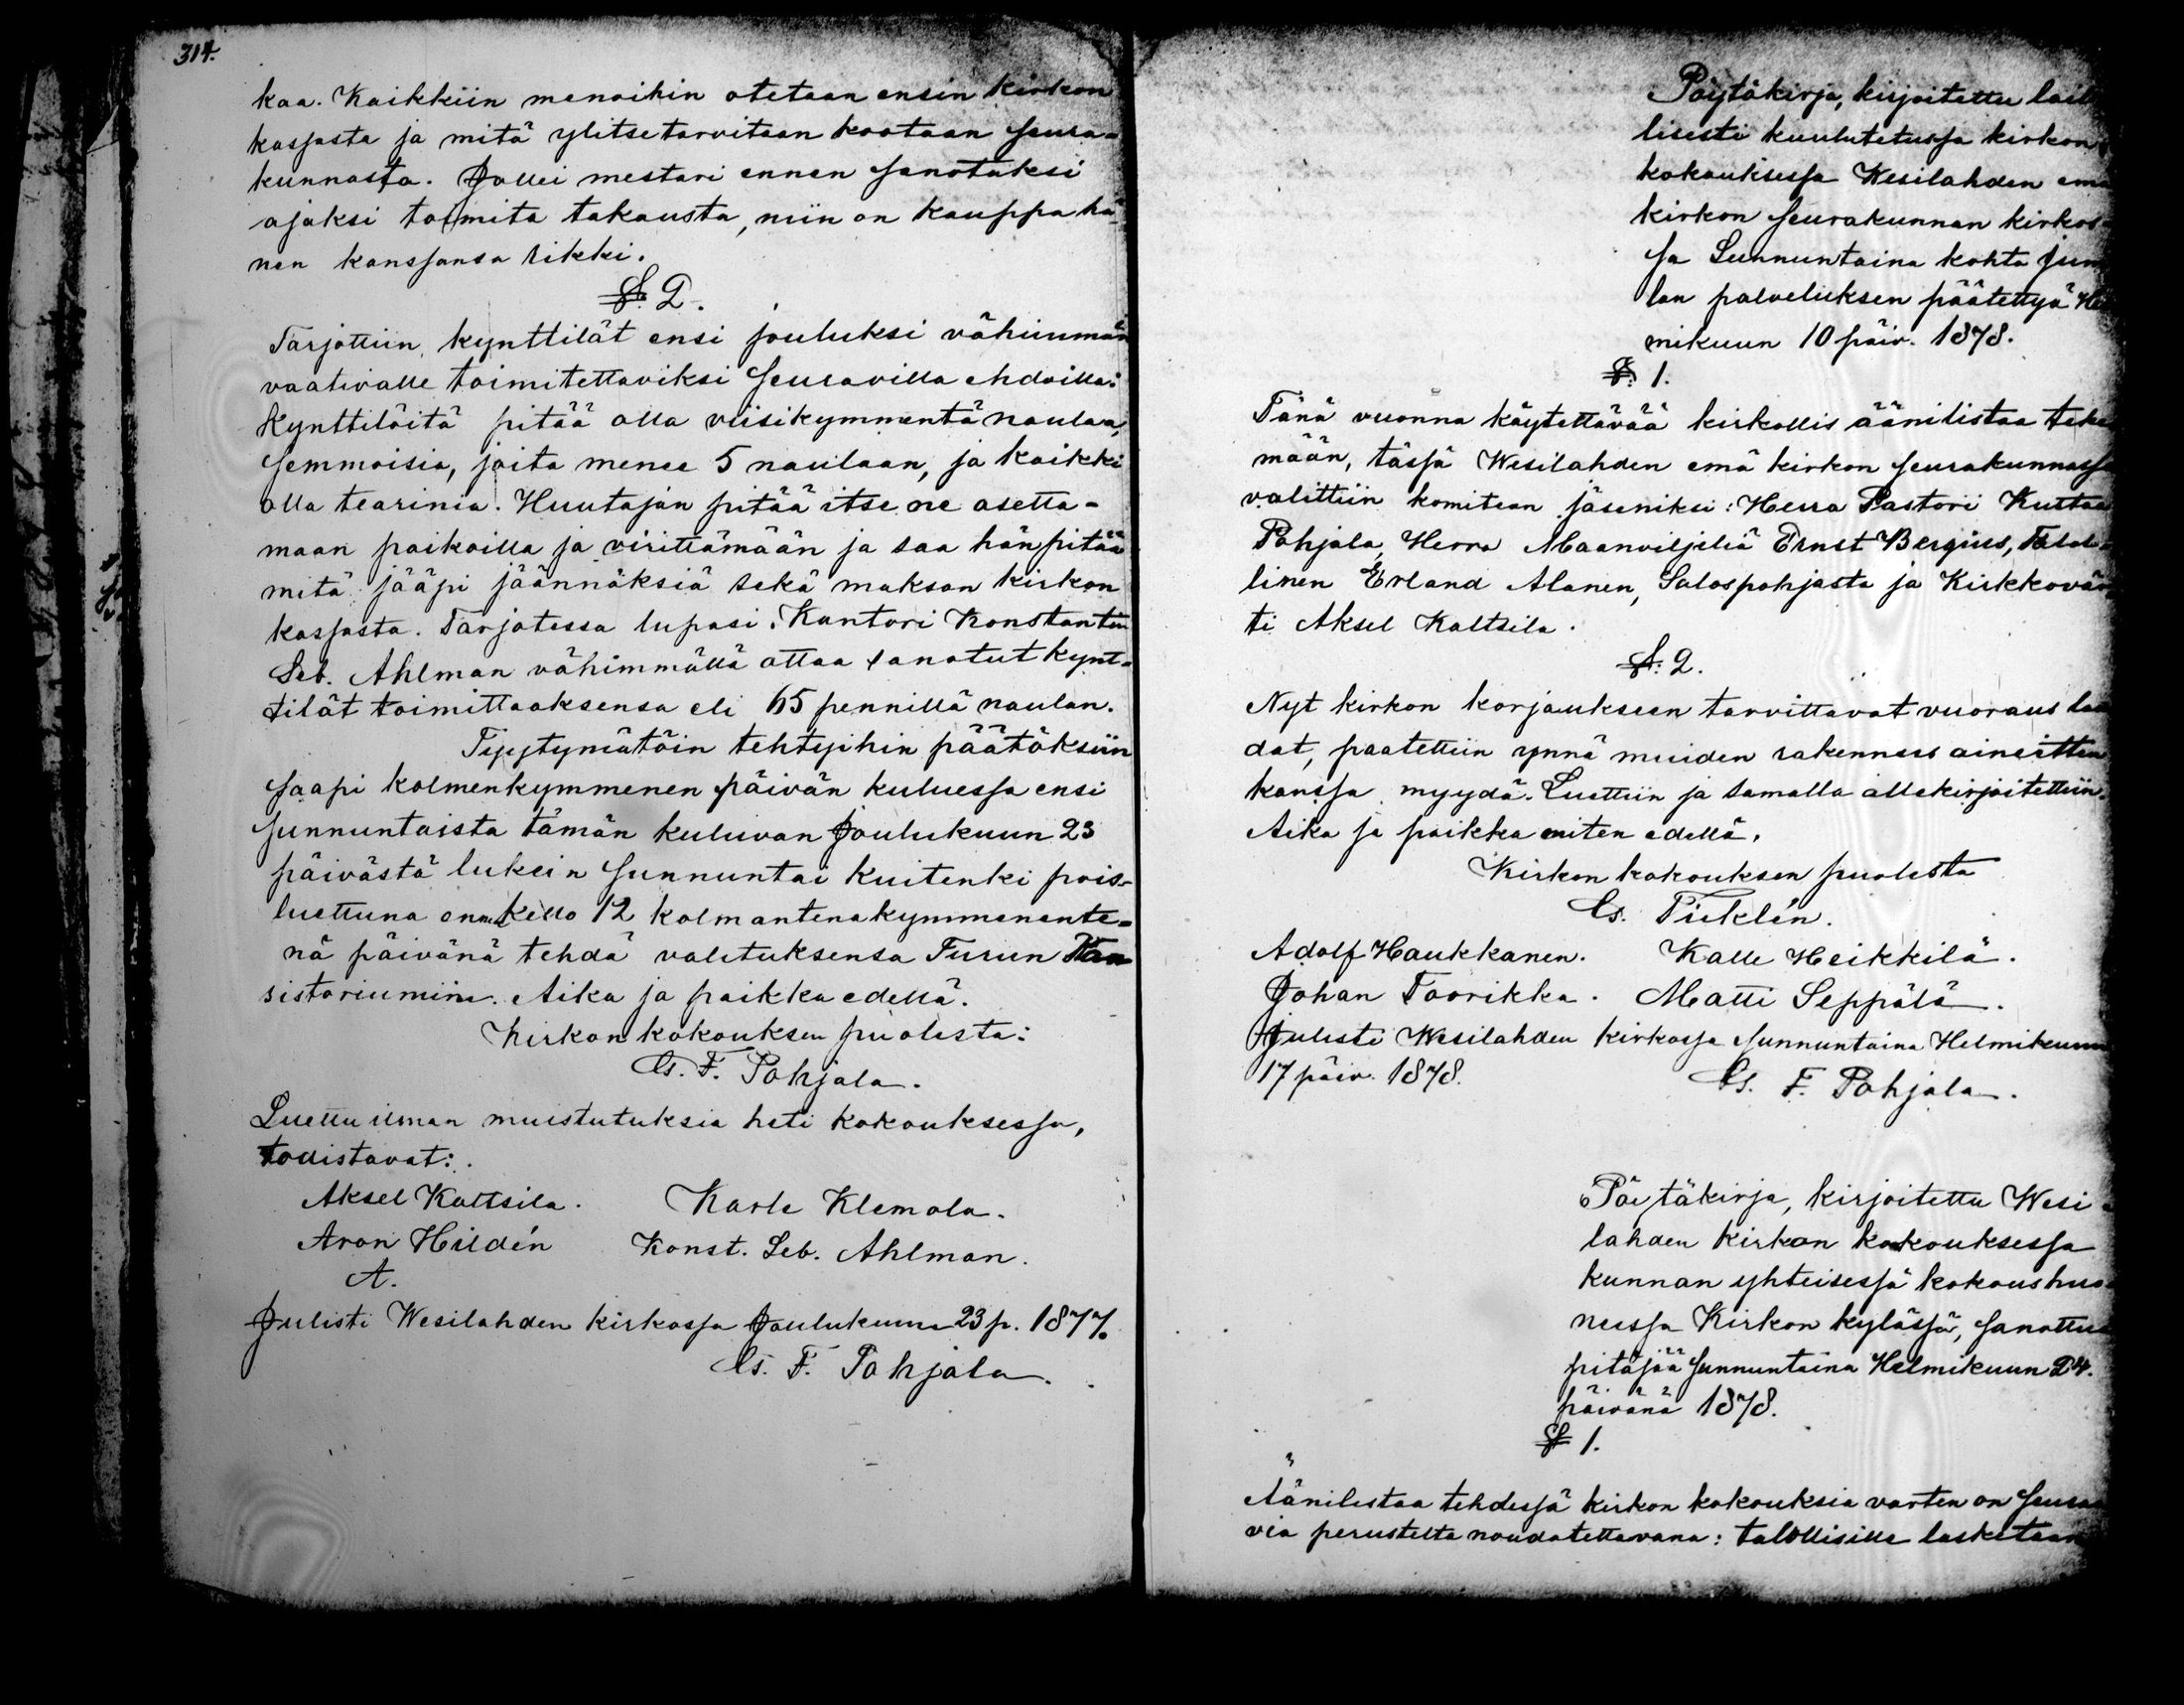 314.
kaa. Kaikkiin menoihin otetaan ensin kirkon
kassasta ja mitä ylitse tarvitaan kootaan seura-
kunnasta. Jollei mestari ennen sanotuksi
ajaksi toimita takausta, niin on kauppa hä-
nen kanssansa rikki.
§. 2.
Tarjottiin kynttilät ensi jouluksi vähimmän
vaativalle toimitettaviksi seuravilla ehdoilla:
Kynttilöitä pitää olla viisikymmentä naulaa,
semmoisia, joita menee 5 naulaan, ja kaikki
olla tearinia. Huutajan pitää itse ne asetta-
maan paikoilla ja virittämään ja saa hän pitää
mitä jääpi jäännöksiä sekä maksan kirkon
kassasta. Tarjotessa lupasi Kantori Konstantin
Seb. Ahlman vähimmällä ottaa sanotut kynt-
tilät toimittaaksensa eli 65 pennillä naulan.
Tyytymätöin tehtyihin päätöksiin
saapi kolmenkymmenen päivän kuluessa ensi
sunnuntaista tämän kuluvan Joulukuun 23
päivästä lukein sunnuntai kuitenki pois-
luettuna ennen kello 12 kolmantenakymmenente-
nä päivänä tehdä valituksensa Turun Kon
sistoriumiin. Aika ja paikka edellä.
Kirkon kokouksen puolesta:
Gs. F. Pohjala.
Luettu ilman muistutuksia heti kokouksessa,
todistavat:
Aksel Kaltsila. Karle Klemola.
Aron Hildén Konst. Seb. Ahlman.
A.
Julisti Wesilahden kirkossa Joulukuun 23 p. 1877.
Gs. F. Pohjala.
Pöytäkirja, kirjoitettu lail
lisesti kuulutetussa kirkon
kokouksessa Wesilahden emä
kirkon seurakunnan kirkos-
sa Sunnuntaina kohta Jum
lan palveluksen päätettyä Hel
mikuun 10 päiv. 1878.
§. 1.
Tänä vuonna käytettävää kirkollis äänilistaa teke
mään, tässä Wesilahden emä kirkon seurakunnassa
valittiin komitean jäseniksi: Herra Pastori Kustaa
Pohjala, Herra Maanviljeliä Ernst Bergius, Talol-
linen Erland Alanen, Salospohjasta ja Kirkkovär
ti Aksel Kaltsila.
§. 2.
Nyt kirkon korjaukseen tarvittavat vuoraus lau
dat, paatettiin ynnä muiden rakennus aineitten
kanssa myydä. Luettiin ja samalla allekirjoitettiin.
Aika ja paikka miten edellä.
Kirkon kokouksen puolesta
Gs. Ticklén.
Adolf Haukkanen. Kalle Heikkilä.
Johan Toorikka. Matti Seppälä.
Julisti Wesilahden kirkossa sunnuntaina Helmikuun
17 päiv. 1878. Gs. F. Pohjala.
Pöytäkirja, kirjoitettu Wesi-
lahden kirkon kokouksessa
kunnan yhteisessä kokoushuo-
neessa Kirkon kylässä, sanottua
pitäjää sunnuntaina Helmikuun 24.
päivänä 1878.
§ 1.
Äänilistaa tehdessä kirkon kokouksia varten on seuraa
via perusteita noudatettavana: talollisille lasketaan